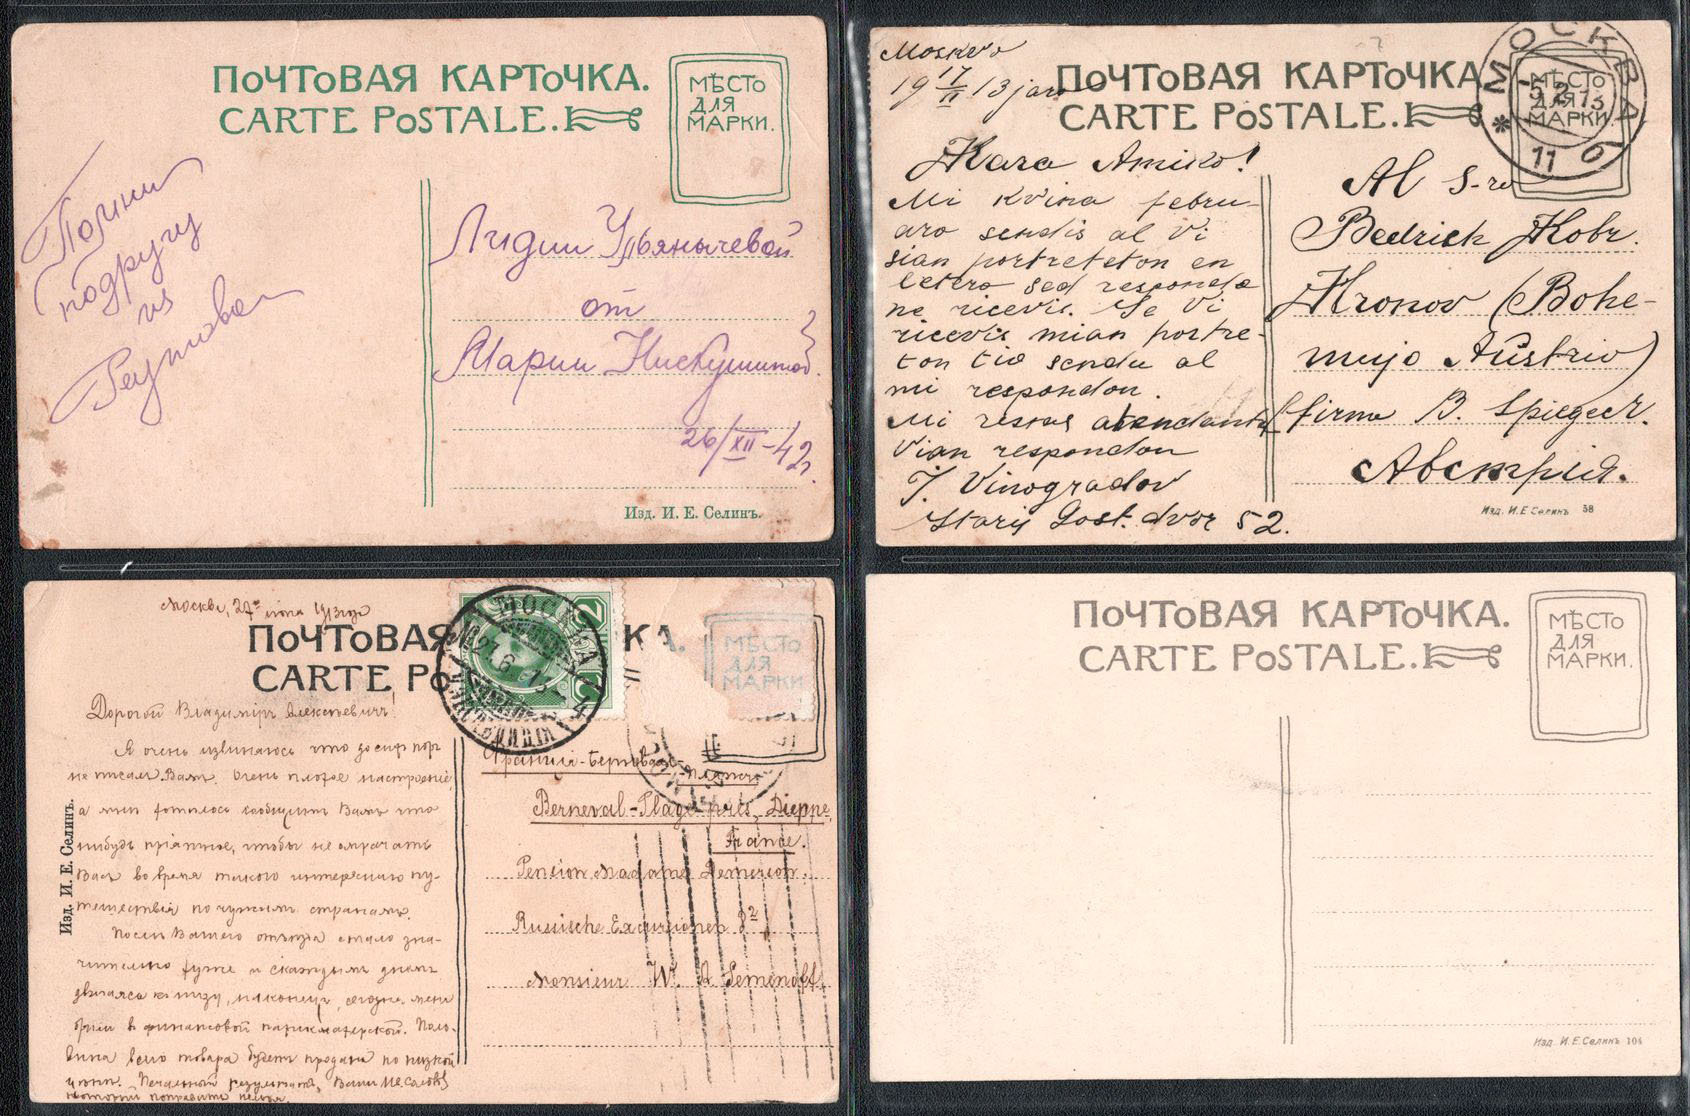 ПОЧТОВАЯ КАРТОЧКА.
CARTE POSTALE.
МѢСТО
ДЛЯ
МАРКИ.
Помни
подругу
из
Реутова
Лидии Ульянычевой
от
Марии
26/XII-42г.
Изд. И. Е. Селинъ.
Moskvo
19 17/II 13 jaro
ПОЧТОВАЯ КАРТОЧКА
CARTE POSTALE.
МѢСТО
ДЛЯ
МАРКИ.
МОСКВА
5.2.13
11
Kara Amiko!
Mi kvina febru-
aro sendis al Vi
sian portreteton en
letero sed respondo
ne ricevis. Se Vi
ricevis mian portre-
ton tio sendu al
mi respondon.
Mi restas atendante
Vian respondon
J. Vinogradov
Starij Gost. dvor 52.
Al S-ro
Bedrich Kobr.
Hronov (Bohe-
mujo Aŭstrio)
(firmo B. Spiegler.
Австрія.
Изд. И.Е Селинъ 38
Москва, 27го іюня 1913 года
ПОЧТОВАЯ КА.
CARTE PO
МѢСТО
ДЛЯ
МАРКИ
МОСКВА
27.6.13
ЭКСПЕДИЦІЯ
Дорогой Владиміръ Алексѣевичъ!
Я очень извиняюсь что до сихъ поръ
не писалъ Вамъ. Очень плохое настроеніе,
а мнѣ хотѣлось сообщить Вамъ что
нибудь пріятное, чтобы не омрачать
Васъ во время такого интереснаго пу-
тешествія по чужимъ странамъ.
Послѣ Вашего отъѣзда стало зна-
чительно хуже и съ каждымъ днемъ
двигаясь къ низу, наконецъ, сегодня меня
брили в финансовой парикмахерской. Поло-
вина всего товара будетъ продана по низкой
цѣнѣ. Печальный результатъ,
который поправить нельзя.
Изд. И. Е. Селинъ.
Франція-Берневаль-
Пляжъ
Berneval-Plage près Dieppe,
France.
Pension Madame Demerson.
Russische Excursionen 8²
Monsieur W. A. Semenoff,
ПОЧТОВАЯ КАРТОЧКА.
CARTE POSTALE.
МѢСТО
ДЛЯ
МАРКИ.
Изд. И.Е.Селинъ 104